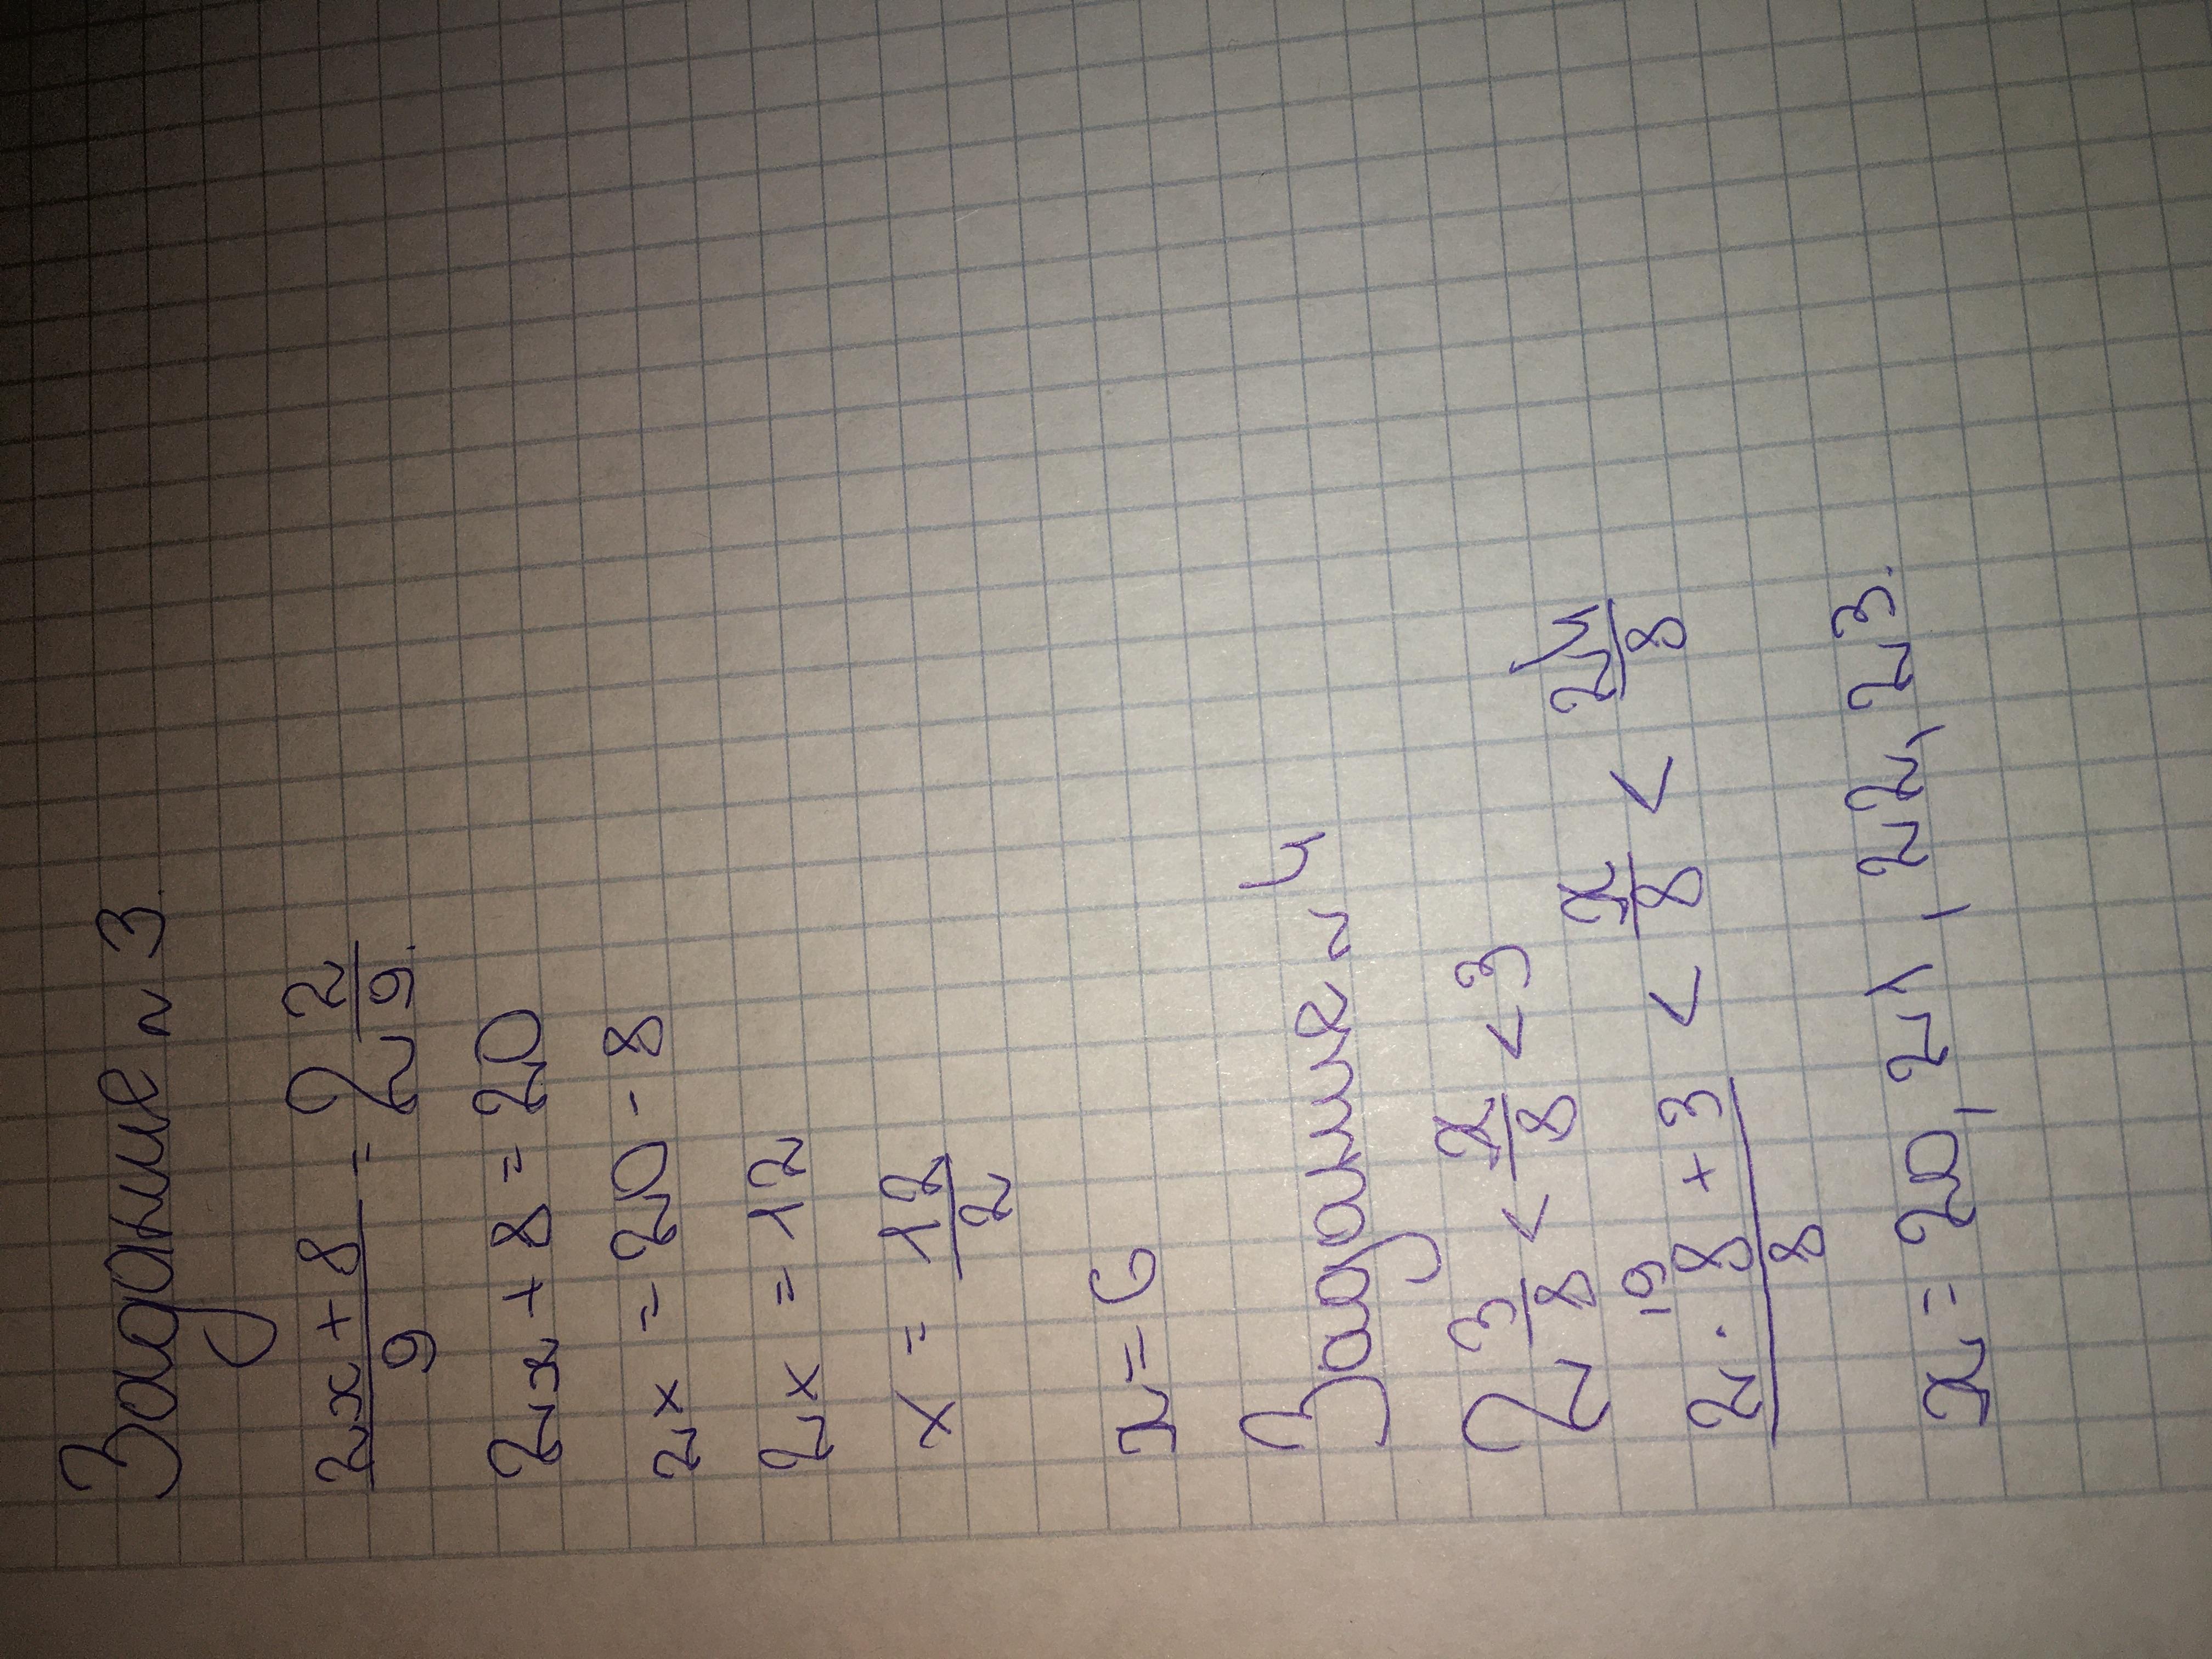 Задание № 3.
(2x + 8)/9 = 2 2/9.
2x + 8 = 20
2x = 20 - 8
2x = 12
x = 12/2
x = 6
Задание № 4
2 3/8 < x/8 < 3
19
(2 · 8 + 3)/8 < x/8 < 24/8
x = 20, 21, 22, 23.